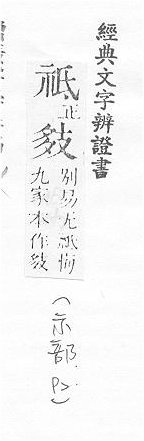 經典文字辨證書
祇正𢻱
別易无祇悔
九家本作𢻱
(示部.P2)